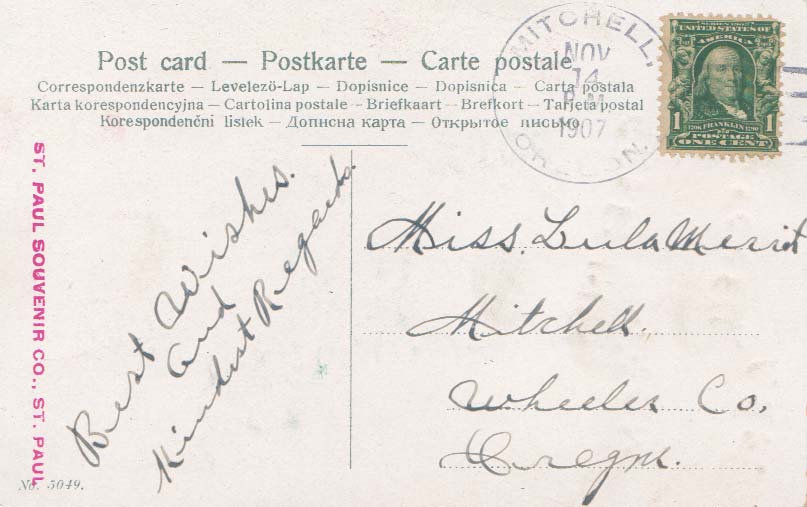 Post card — Postkarte — Carte postale
Correspondenzkarte — Levelezö-Lap — Dopisnice — Dopisnica — Carta postala
Karta korespondencyjna — Cartolina postale — Briefkaart — Brefkort — Tarjeta postal
Korespondenčni listek — Дописна карта — Открытое письмо
MITCHELL,
NOV
14
P.M.
1907
OREGON.
SERIES 1902
UNITED STATES OF
AMERICA
1706 FRANKLIN 1790
POSTAGE
1 ONE CENT 1
ST. PAUL SOUVENIR CO., ST. PAUL
Best Wishes.
and
Kindest Regards.
Miss. Lula Merrit
Mitchell.
Wheeler Co,
Oregon.
No. 5049.